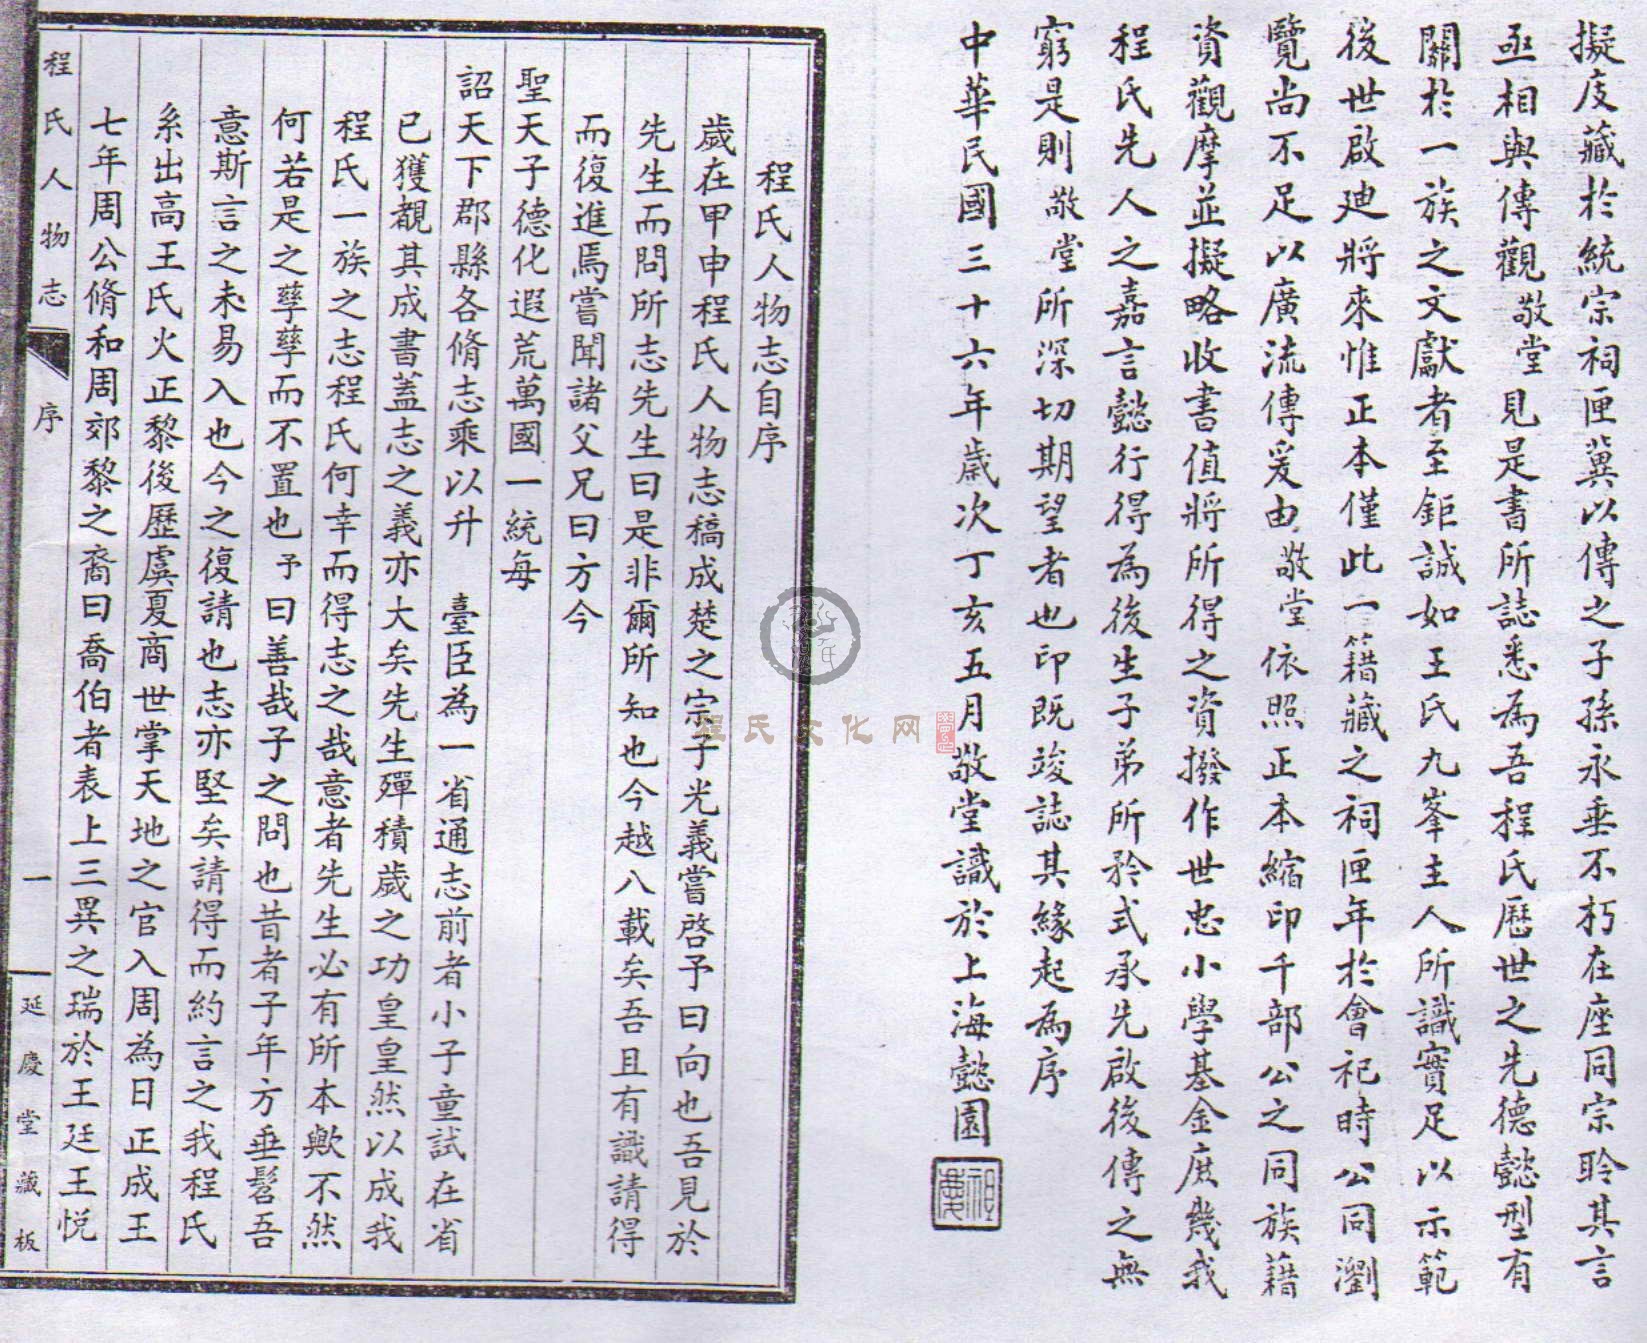 擬庋藏於統宗祠匣冀以傳之子孫永垂不朽在座同宗聆其言
亟相與傳觀敬堂見是書所誌悉為吾程氏歷世之先德懿型有
關於一族之文獻者至鉅誠如王氏九峯主人所識實足以示範
後世啟迪將來惟正本僅此一籍藏之祠匣年於會祀時公同瀏
覽尚不足以廣流傳爰由敬堂依照正本縮印千部公之同族藉
資觀摩並擬略收書值將所得之資撥作世忠小學基金庶幾我
程氏先人之嘉言懿行得為後生子弟所矜式承先啟後傳之無
窮是則敬堂所深切期望者也印既竣誌其緣起為序
中華民國三十六年歲次丁亥五月敬堂識於上海懿園
程氏人物志自序
歲在甲申程氏人物志稿成楚之宗子光義嘗啓予曰向也吾見於
先生而問所志先生曰是非爾所知也今越八載矣吾且有識請得
而復進焉嘗聞諸父兄曰方今
聖天子德化遐荒萬國一統每
詔天下郡縣各脩志乘以升 臺臣為一省通志前者小子童試在省
已獲覩其成書蓋志之義亦大矣先生殫積歲之功皇皇然以成我
程氏一族之志程氏何幸而得志之哉意者先生必有所本歟不然
何若是之孳孳而不置也予曰善哉子之問也昔者子年方垂髫吾
意斯言之未易入也今之復請也志亦堅矣請得而約言之我程氏
系出高王氏火正黎後歷虞夏商世掌天地之官入周為日正成王
七年周公脩和周郊黎之裔曰喬伯者表上三異之瑞於王廷王悅
程氏人物志
序
一
延慶堂藏板
程氏文化网